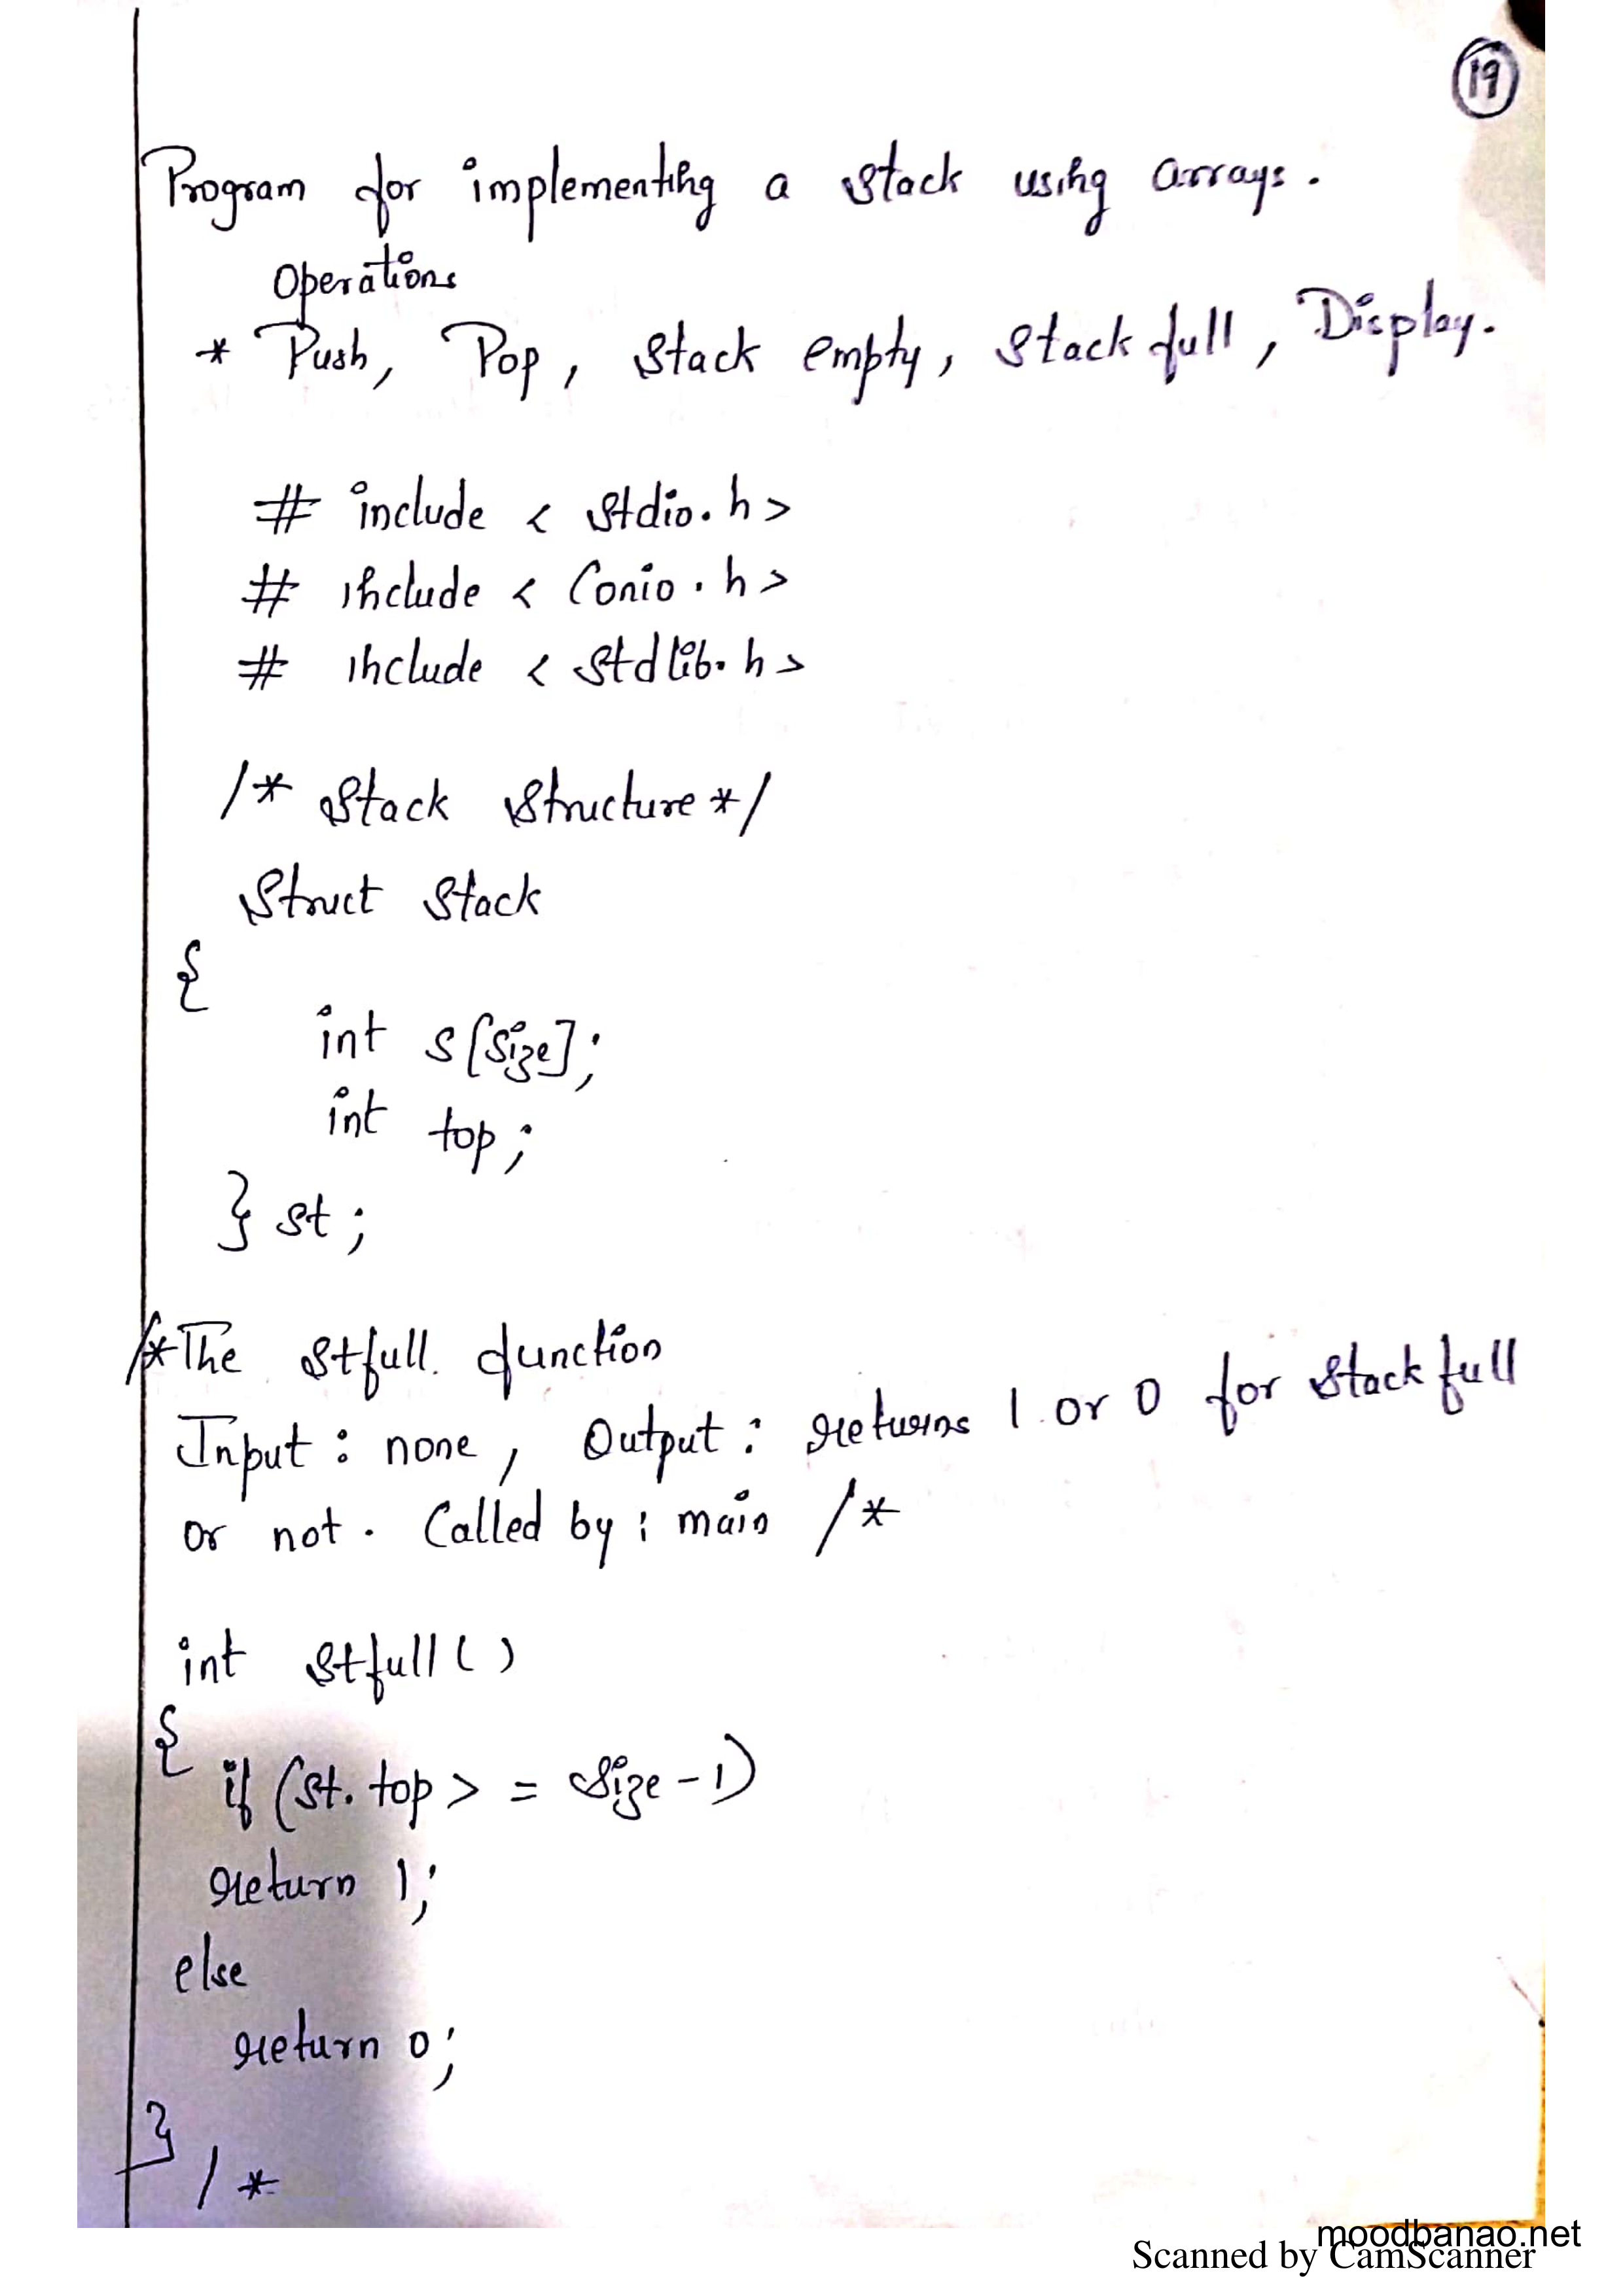 19
Program for implementing a stack using arrays.
Operations
* Push, Pop, Stack empty, Stack full, Display.
# include < Stdio.h>
# include < Conio.h>
# include < Stdlib.h>
/* Stack Structure */
Struct Stack
{
int s[size];
int top;
} st;
/*The Stfull function
Input : none, Output : returns 1 or 0 for Stack full
or not. Called by : main /*
int Stfull()
{
if (St.top > = Size-1)
return 1;
else
return 0;
}
/*
moodbanao.net
Scanned by CamScanner